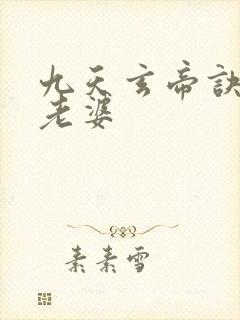 九天玄帝诀
老婆
素素雪